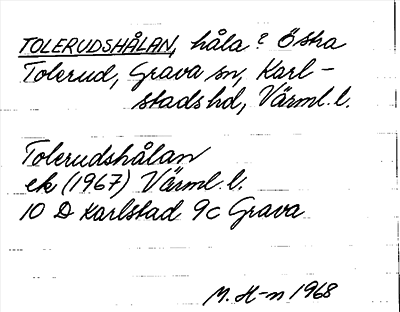 TOLERUDSHÅLAN, håla? Östra
Tolerud, Grava sn, Karl-
stads hd, Värml. l.
Tolerudshålan
ek (1967) Värml. l.
10 D Karlstad 9c Grava
M. H-n 1968